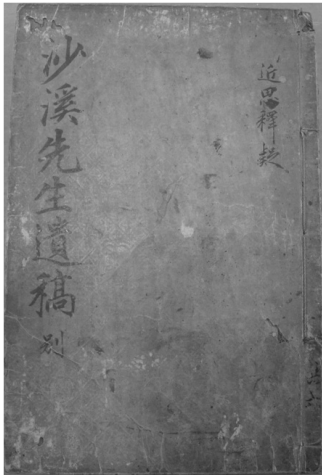 近思釋疑
沙溪先生遺稿 別